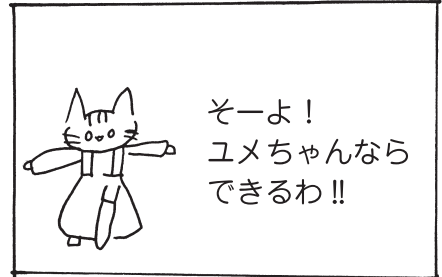 そーよ！
ユメちゃんなら
できるわ!!